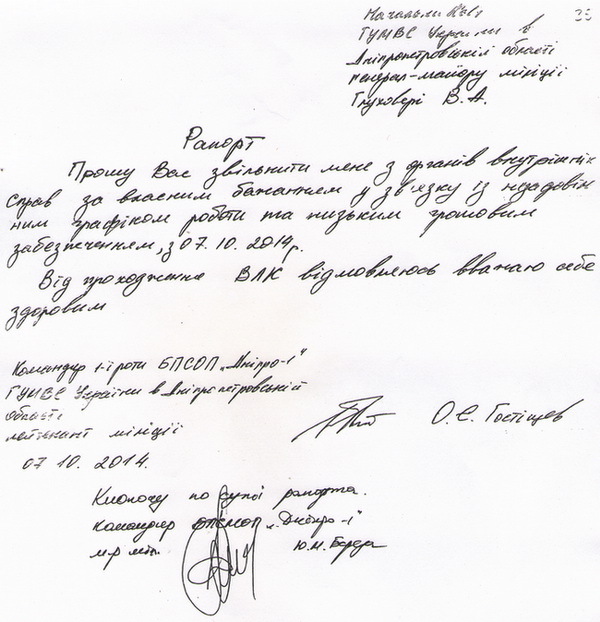 Начальнику 35
ГУМВС України в
Дніпропетровській області
генерал-майору міліції
Глуховері В.А.
Рапорт
Прошу Вас звільнити мене з органів внутрішніх
справ за власним бажанням у зв'язку із незадовіл
ним графіком роботи та низьким грошовим
забезпеченням, з 07.10.2014р.
Від проходження ВЛК відмовляюсь вважаю себе
здоровим
Командир роти БПСОП „Дніпро-1"
ГУМВС України в Дніпропетровській
області
лейтенант міліції О.Є. Гостіщев
07 10. 2014.
Клопочу по суті рапорта.
Командир БПСОП „Дніпро-1"
м-р міл. Ю.М. Береза